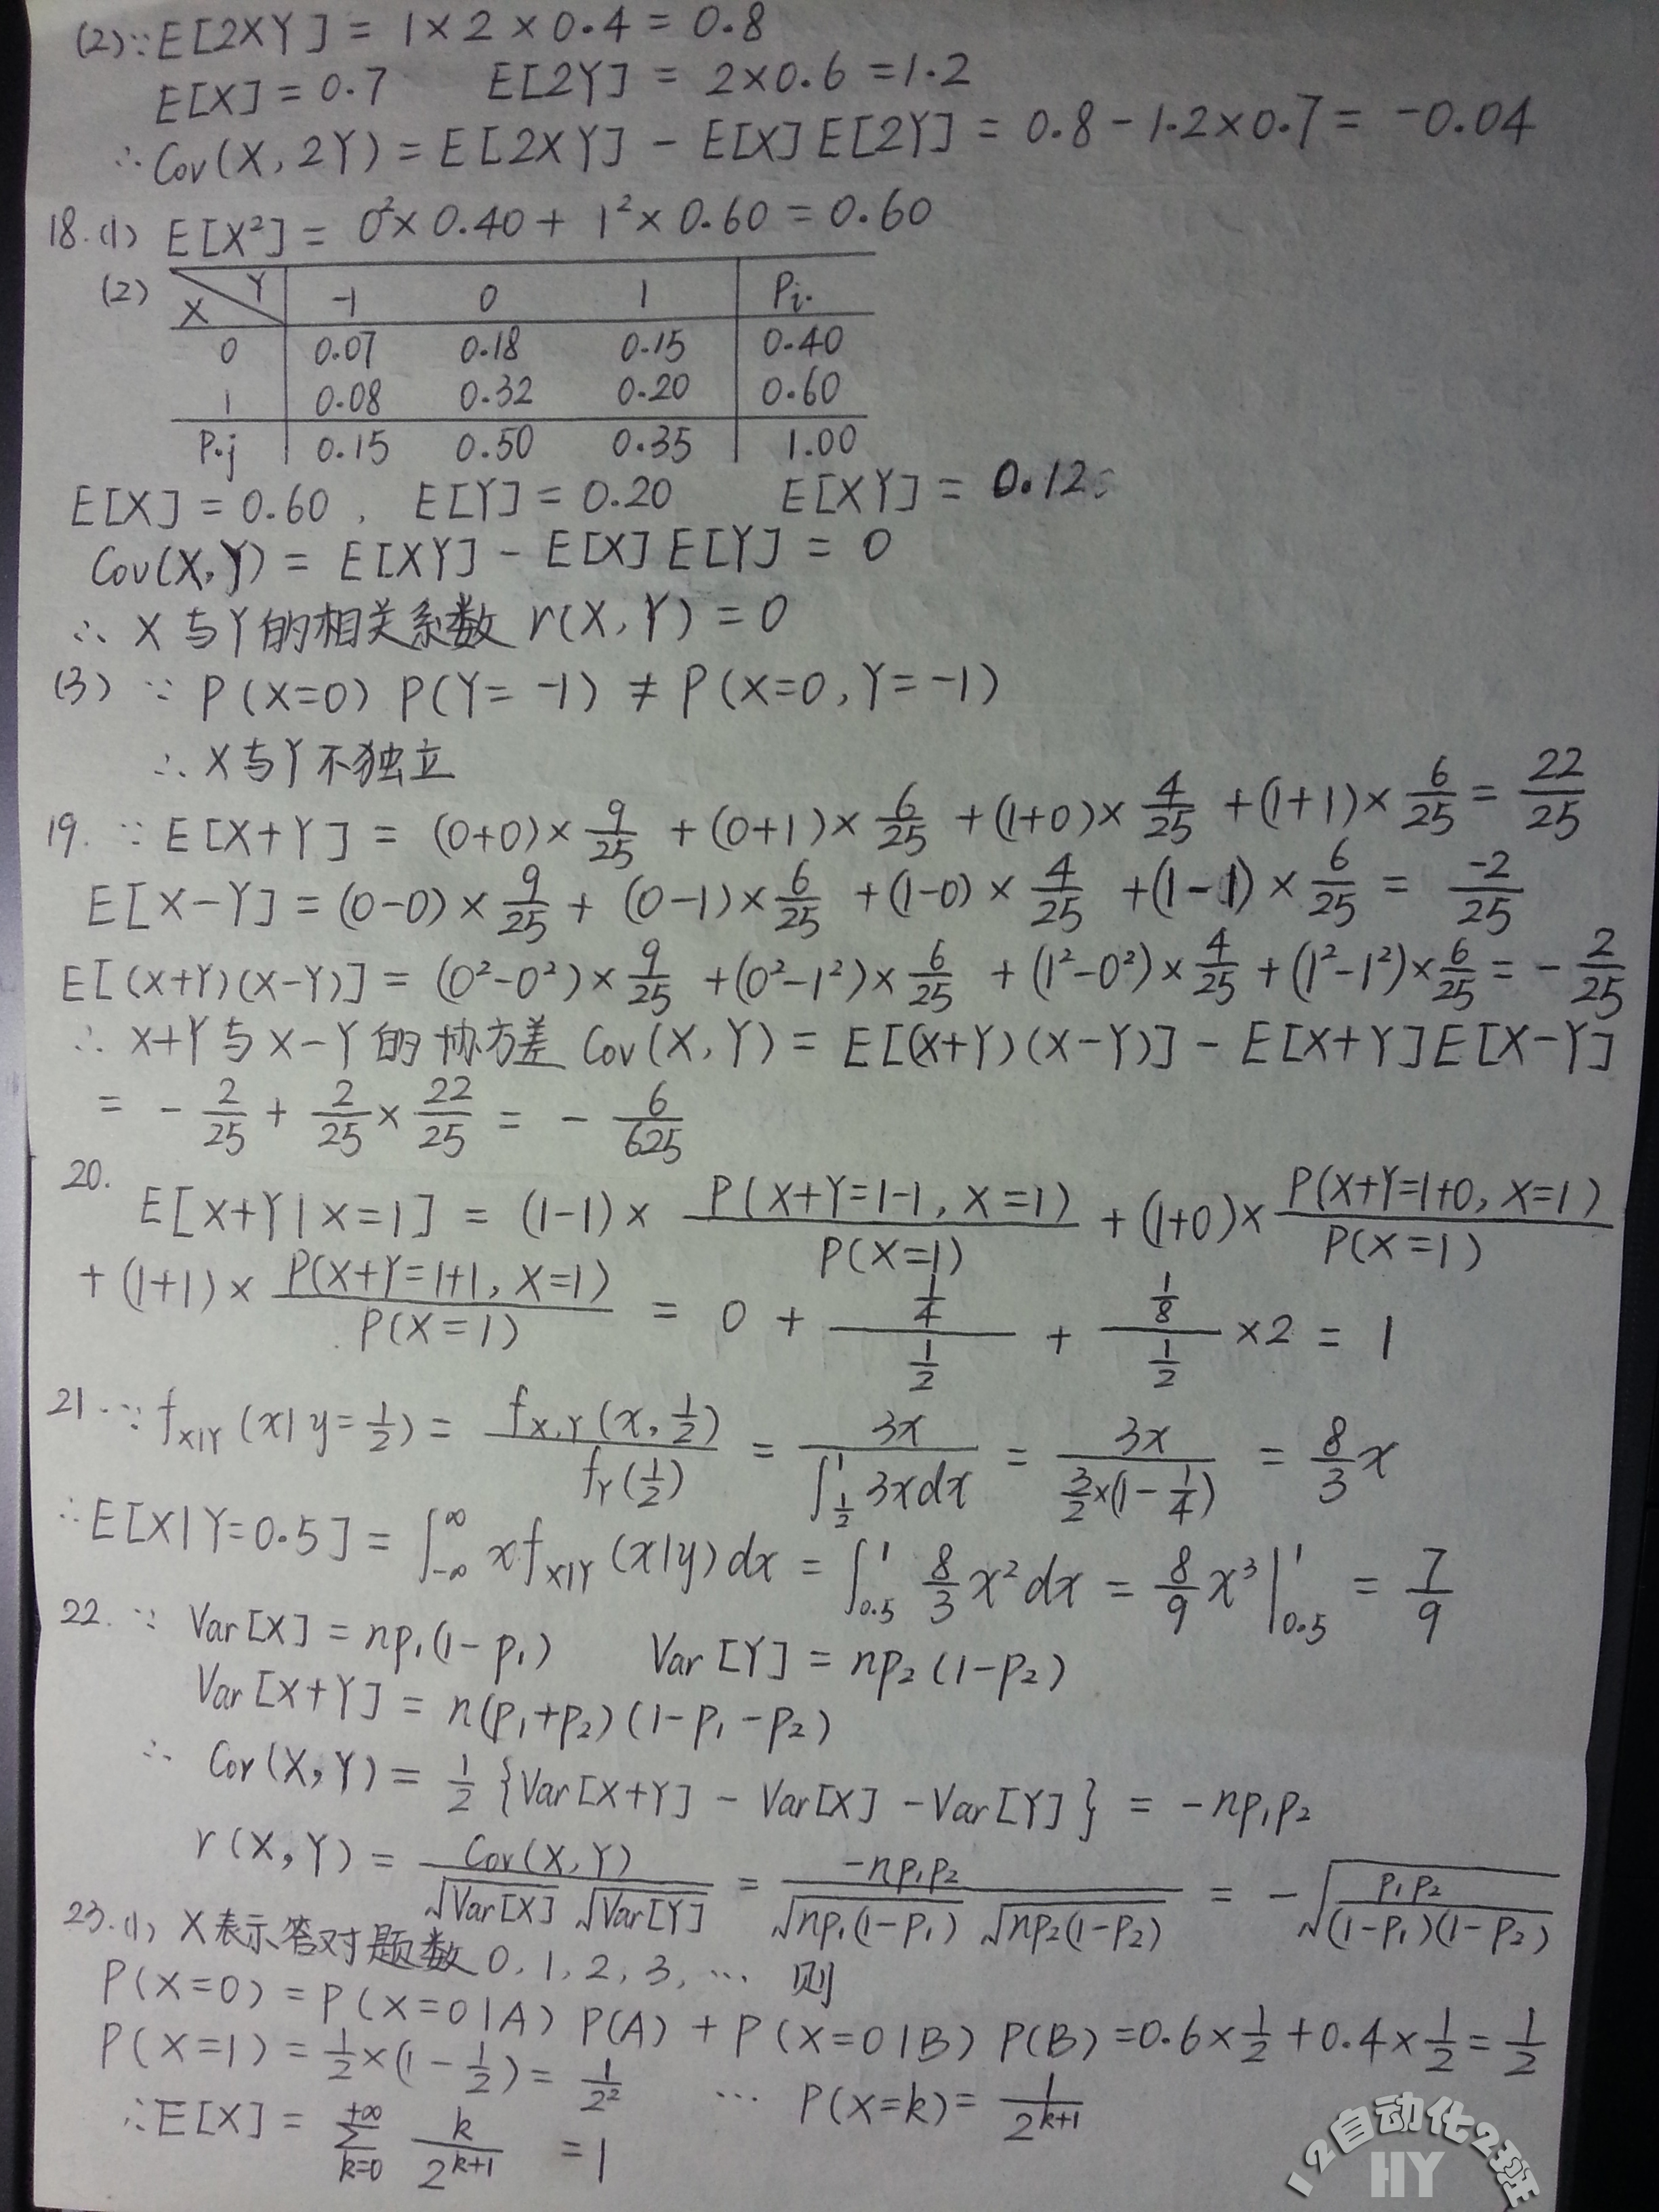 (2)∵E[2XY] = 1×2×0.4 = 0.8
E[X] = 0.7 E[2Y] = 2×0.6 = 1.2
∴Cov(X, 2Y) = E[2XY] - E[X]E[2Y] = 0.8 - 1.2×0.7 = -0.04
18.(1) E[X²] = 0²×0.40 + 1²×0.60 = 0.60
(2) X Y -1 0 1 Pi.
0 0.07 0.18 0.15 0.40
1 0.08 0.32 0.20 0.60
P.j 0.15 0.50 0.35 1.00
E[X] = 0.60, E[Y] = 0.20 E[XY] = 0.12
Cov(X,Y) = E[XY] - E[X]E[Y] = 0
∴ X与Y的相关系数 r(X,Y) = 0
(3) ∵ P(X=0) P(Y=-1) ≠ P(X=0, Y=-1)
∴ X与Y不独立
19. ∵ E[X+Y] = (0+0)×9/25 + (0+1)×6/25 + (1+0)×4/25 + (1+1)×6/25 = 22/25
E[X-Y] = (0-0)×9/25 + (0-1)×6/25 + (1-0)×4/25 + (1-1)×6/25 = -2/25
E[(X+Y)(X-Y)] = (0²-0²)×9/25 + (0²-1²)×6/25 + (1²-0²)×4/25 + (1²-1²)×6/25 = -2/25
∴ X+Y与X-Y的协方差 Cov(X,Y) = E[(X+Y)(X-Y)] - E[X+Y]E[X-Y]
= -2/25 + 2/25×22/25 = -6/625
20. E[X+Y|X=1] = (1-1)×P(X+Y=1-1, X=1)/P(X=1) + (1+0)×P(X+Y=1+0, X=1)/P(X=1)
+ (1+1)×P(X+Y=1+1, X=1)/P(X=1) = 0 + (1/4)/(1/2) + (1/8)/(1/2)×2 = 1
21. ∵ f_X|Y(x|y=1/2) = f_X,Y(x,1/2)/f_Y(1/2) = 3x/∫_{1/2}^{1} 3xdx = 3x/(3/2×(1-1/4)) = 8/3 x
∴ E[X|Y=0.5] = ∫_{-∞}^{∞} x f_X|Y(x|y)dx = ∫_{0.5}^{1} 8/3 x²dx = 8/9 x³|_{0.5}^{1} = 7/9
22. ∵ Var[X] = np₁(1-p₁) Var[Y] = np₂(1-p₂)
Var[X+Y] = n(p₁+p₂)(1-p₁-p₂)
∴ Cov(X,Y) = 1/2{Var[X+Y] - Var[X] - Var[Y]} = -np₁p₂
r(X,Y) = Cov(X,Y)/(√Var[X] √Var[Y]) = -np₁p₂/(√np₁(1-p₁) √np₂(1-p₂)) = -√(p₁p₂/((1-p₁)(1-p₂)))
23.(1) X表示答对题数 0, 1, 2, 3, … 则
P(X=0) = P(X=0|A) P(A) + P(X=0|B) P(B) = 0.6×1/2 + 0.4×1/2 = 1/2
P(X=1) = 1/2×(1-1/2) = 1/2² … P(X=k) = 1/2^{k+1}
∴E[X] = ∑_{k=0}^{+∞} k/2^{k+1} = 1
12自动化2班
HY